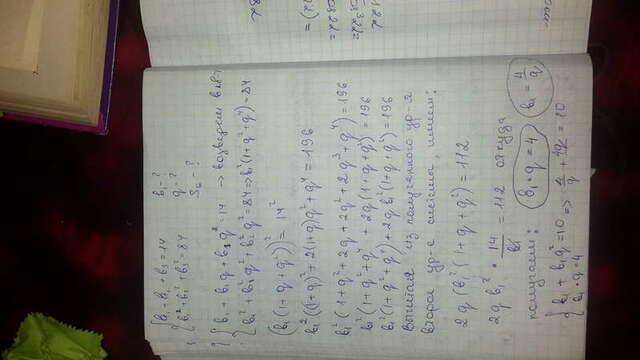 { b₁ + b₂ + b₃ = 14
{ b₁² + b₂² + b₃² = 84
b₁ - ?
q - ?
S₆ - ?
{ b₁ + b₁q + b₁q² = 14 → возведем в кв-т
{ b₁² + b₁²q² + b₁²q⁴ = 84 => b₁²(1+q²+q⁴) = 84
(b₁(1+q+q²))² = 14²
b₁²((1+q)² + 2(1+q)q² + q⁴) = 196
b₁²(1+q²+2q+2q²+2q³+q⁴) = 196
b₁²(1+q²+q⁴+2q(1+q+q²)) = 196
b₁²(1+q²+q⁴) + 2q b₁²(1+q+q²) = 196
Вычитая из полученного ур-я
второе ур-е системы, имеем:
2q(b₁²(1+q+q²)) = 112
2q b₁² · 14/b₁ = 112 откуда
получаем: b₁·q = 4 b₁ = 4/q
{ b₁ + b₁q² = 10 => 4/q + 4q = 10
{ b₁·q = 4